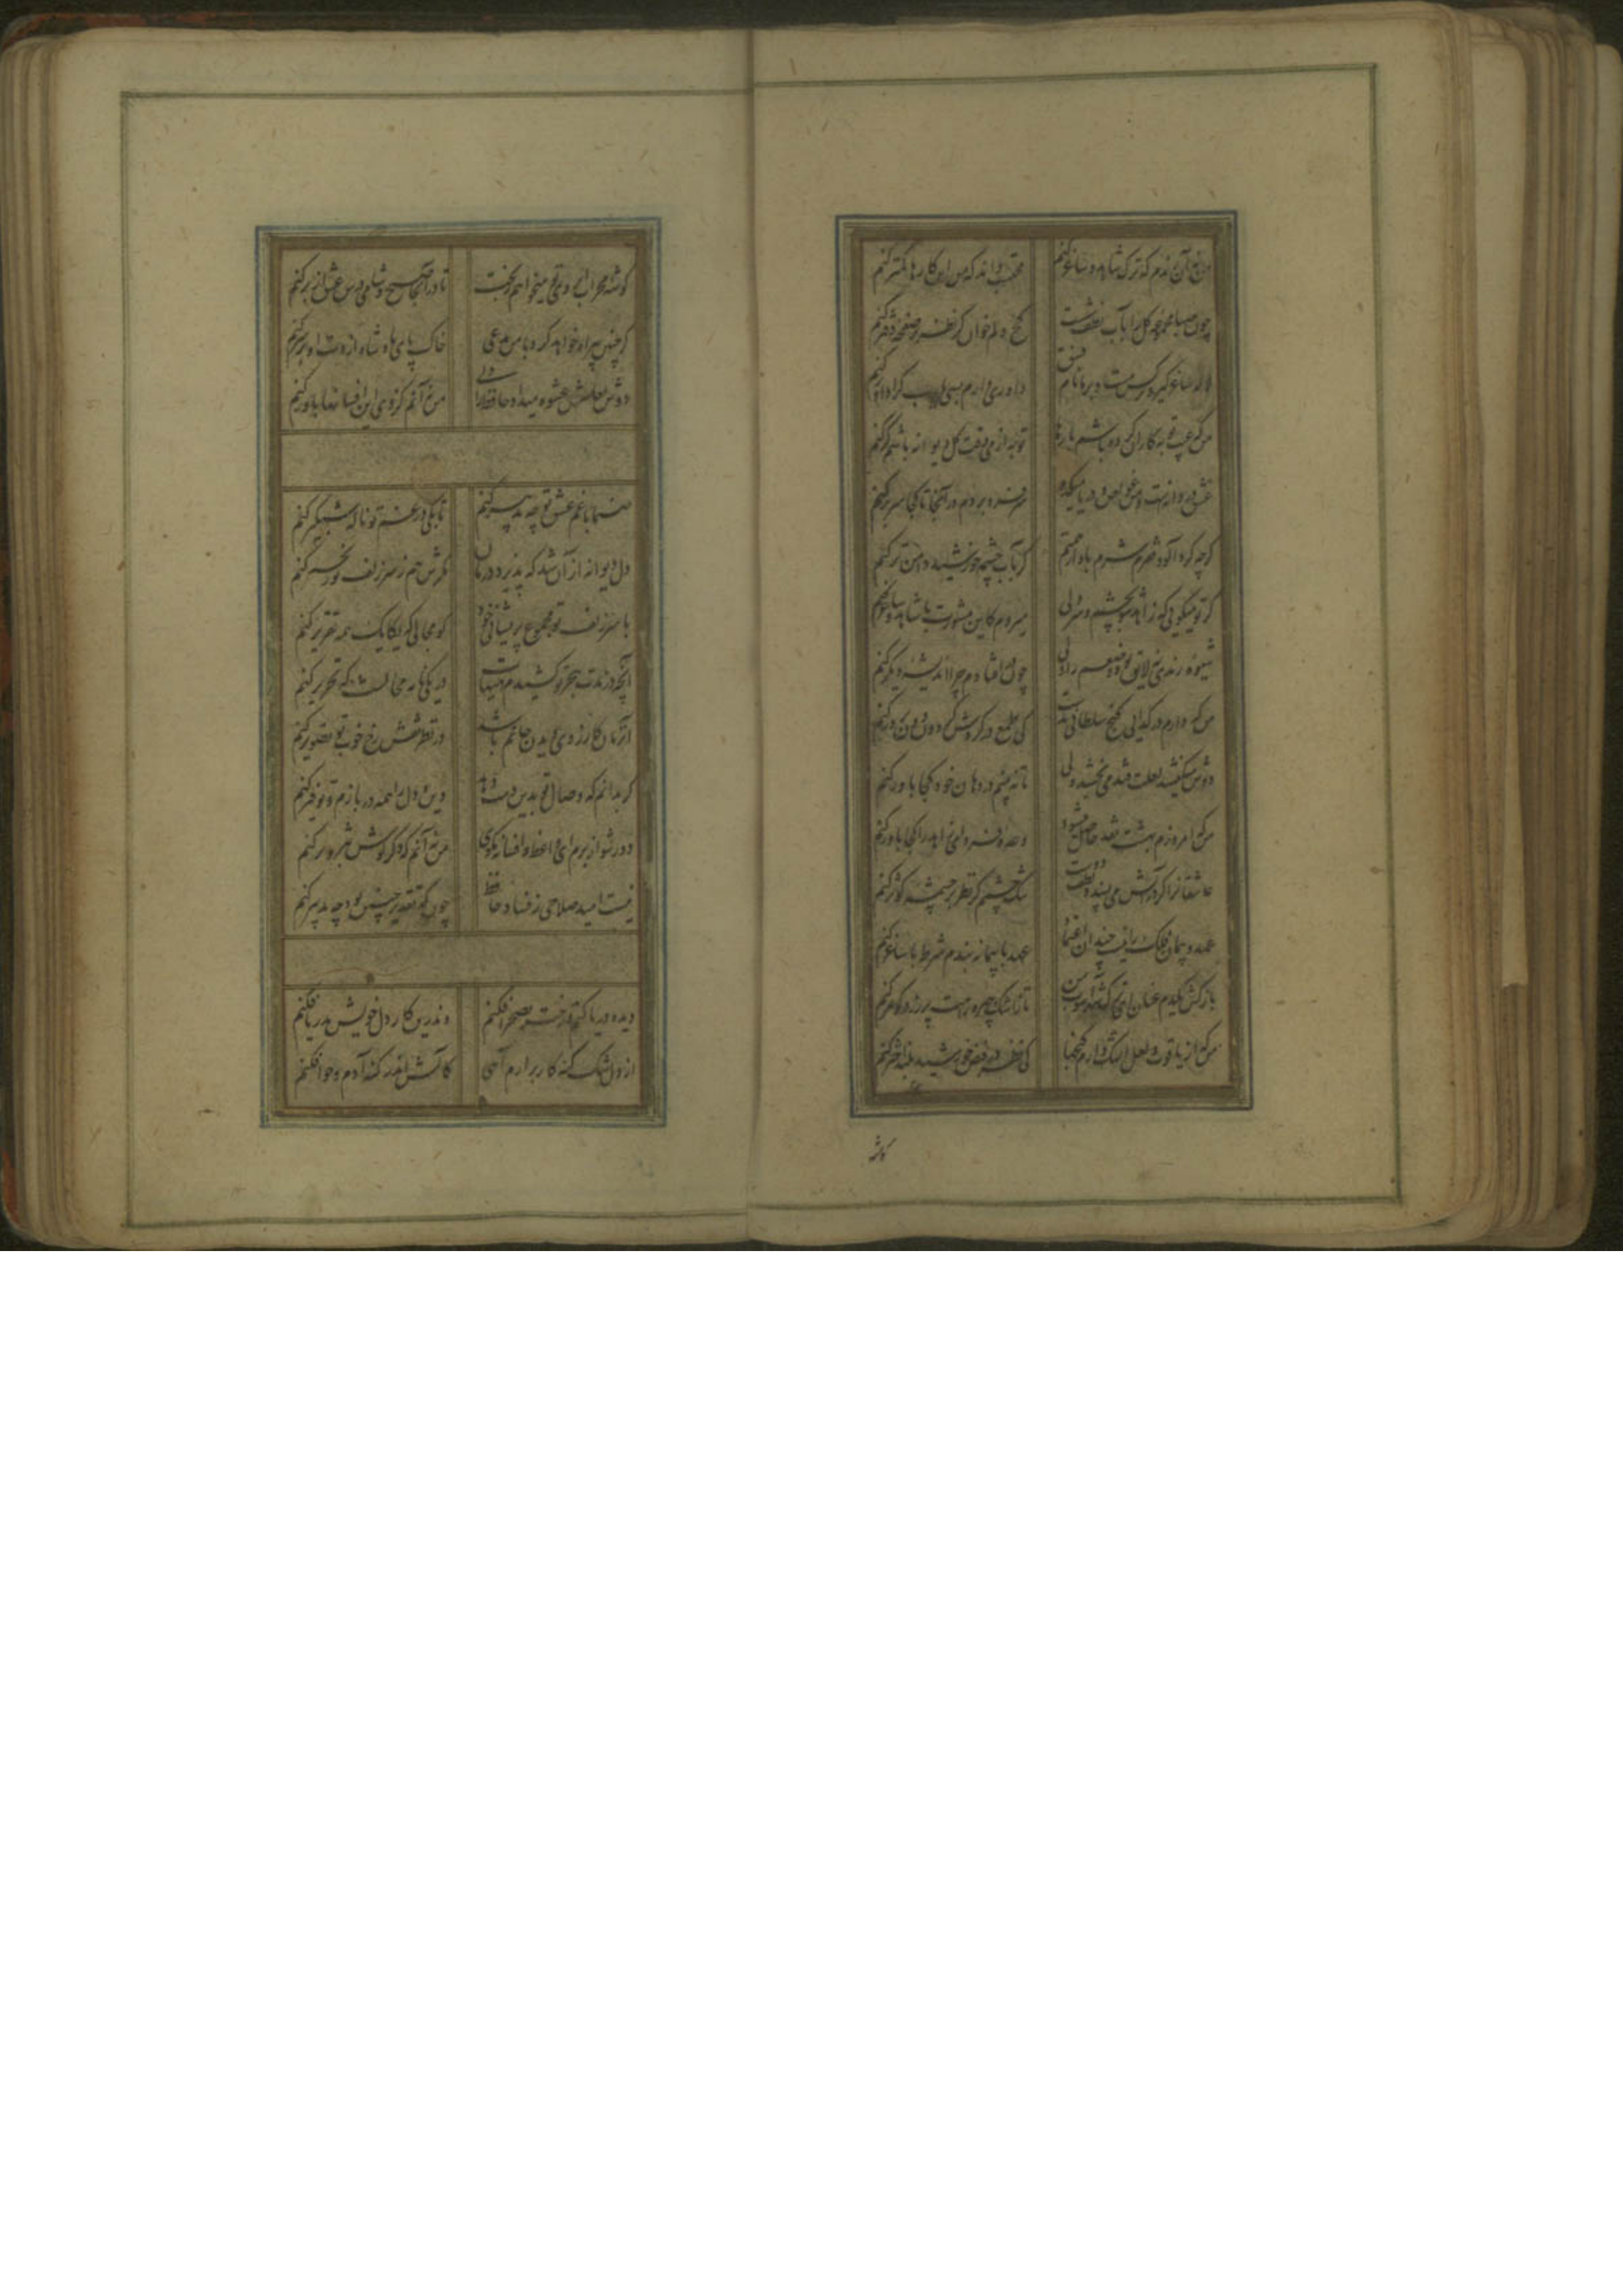 من نه آن رندم که ترک شاهد و ساغر کنم محتسب داند که من این کارها کمتر کنم
چون صبا مجموعه گل را بآب لطف شست کج دلم خوان گر نظر بر صفحه دفتر کنم
لاله ساغر گیر و نرگس مست و بر ما نام فسق داوری دارم بسی یارب کرا داور کنم
من که عیب توبه کاران کرده باشم بارها توبه از می وقت گل دیوانه باشم گر کنم
عشق دردانه است و من غواص و دریا میکده سر فرو بردم در آنجا تا کجا سر بر کنم
گرچه گردآلود فقرم شرم باد از همتم گر بآب چشمه خورشید دامن تر کنم
گر تو میگوئی که زاهد شو بچشم و سر ولی میروم کاین مشورت با شاهد و ساغر کنم
شیوه رندی نه لایق بود وضعم را ولی چون افتادم چرا اندیشه دیگر کنم
من که دارم در گدایی گنج سلطانی بدست کی طمع در گردش گردون دون پرور کنم
دوش میگفتند لعلت قند می بخشد ولی تا نه بینم در دهان خود کجا باور کنم
من که امروزم بهشت نقد حاصل میشود وعده فردای زاهد را کجا باور کنم
عاشقانرا گر در آتش می پسندد لطف دوست تنگ چشمم گر نظر بر چشمه کوثر کنم
عهد و پیمان فلک را نیست چندان اعتماد عهد با پیمانه بندم شرط با ساغر کنم
باز کش یکدم عنان ای ترک شهرآشوب من تا ز اشک و چهره راهت پر زر و گوهر کنم
من که از یاقوت و لعل اشک دارم گنجها کی نظر در فیض خورشید بلند اختر کنم
گوشه
گوشه محراب ابروی تو میخواهم ز بخت تا در آنجا صبح و شامی درس عشق از بر کنم
گر چنین بیراه خواهد کرد با من مدعی خاک پای شاه از دست او بر سر کنم
دوش لعلش عشوه میداد حافظ را ولی من نه آنم کز وی این افسانها باور کنم
صنما با غم عشق تو چه تدبیر کنم تا بکی در غم تو ناله شبگیر کنم
دل دیوانه از آن شد که پذیرد درمان مگرش هم ز سر زلف تو زنجیر کنم
با سر زلف تو مجموع پریشانی خود کو مجالی که یکایک همه تقریر کنم
آنچه در مدت هجر تو کشیدم هیهات در یکی نامه محالست که تحریر کنم
آن زمان کارزوی دیدن جانم باشد در نظر نقش رخ خوب تو تصویر کنم
گر بدانم که وصال تو بدین دست دهد دین و دل را همه در بازم و توفیر کنم
دور شو از برم ای واعظ و افسانه مگوی من نه آنم که دگر گوش بتزویر کنم
نیست امید صلاحی ز فساد حافظ چون که تقدیر چنین بود چه تدبیر کنم
دیده دریا کنم و رخت بصحرا فکنم وندرین کار دل خویش بدریا فکنم
از دل تنگ گنه کار برآرم آهی کآتش اندر گنه آدم و حوا فکنم